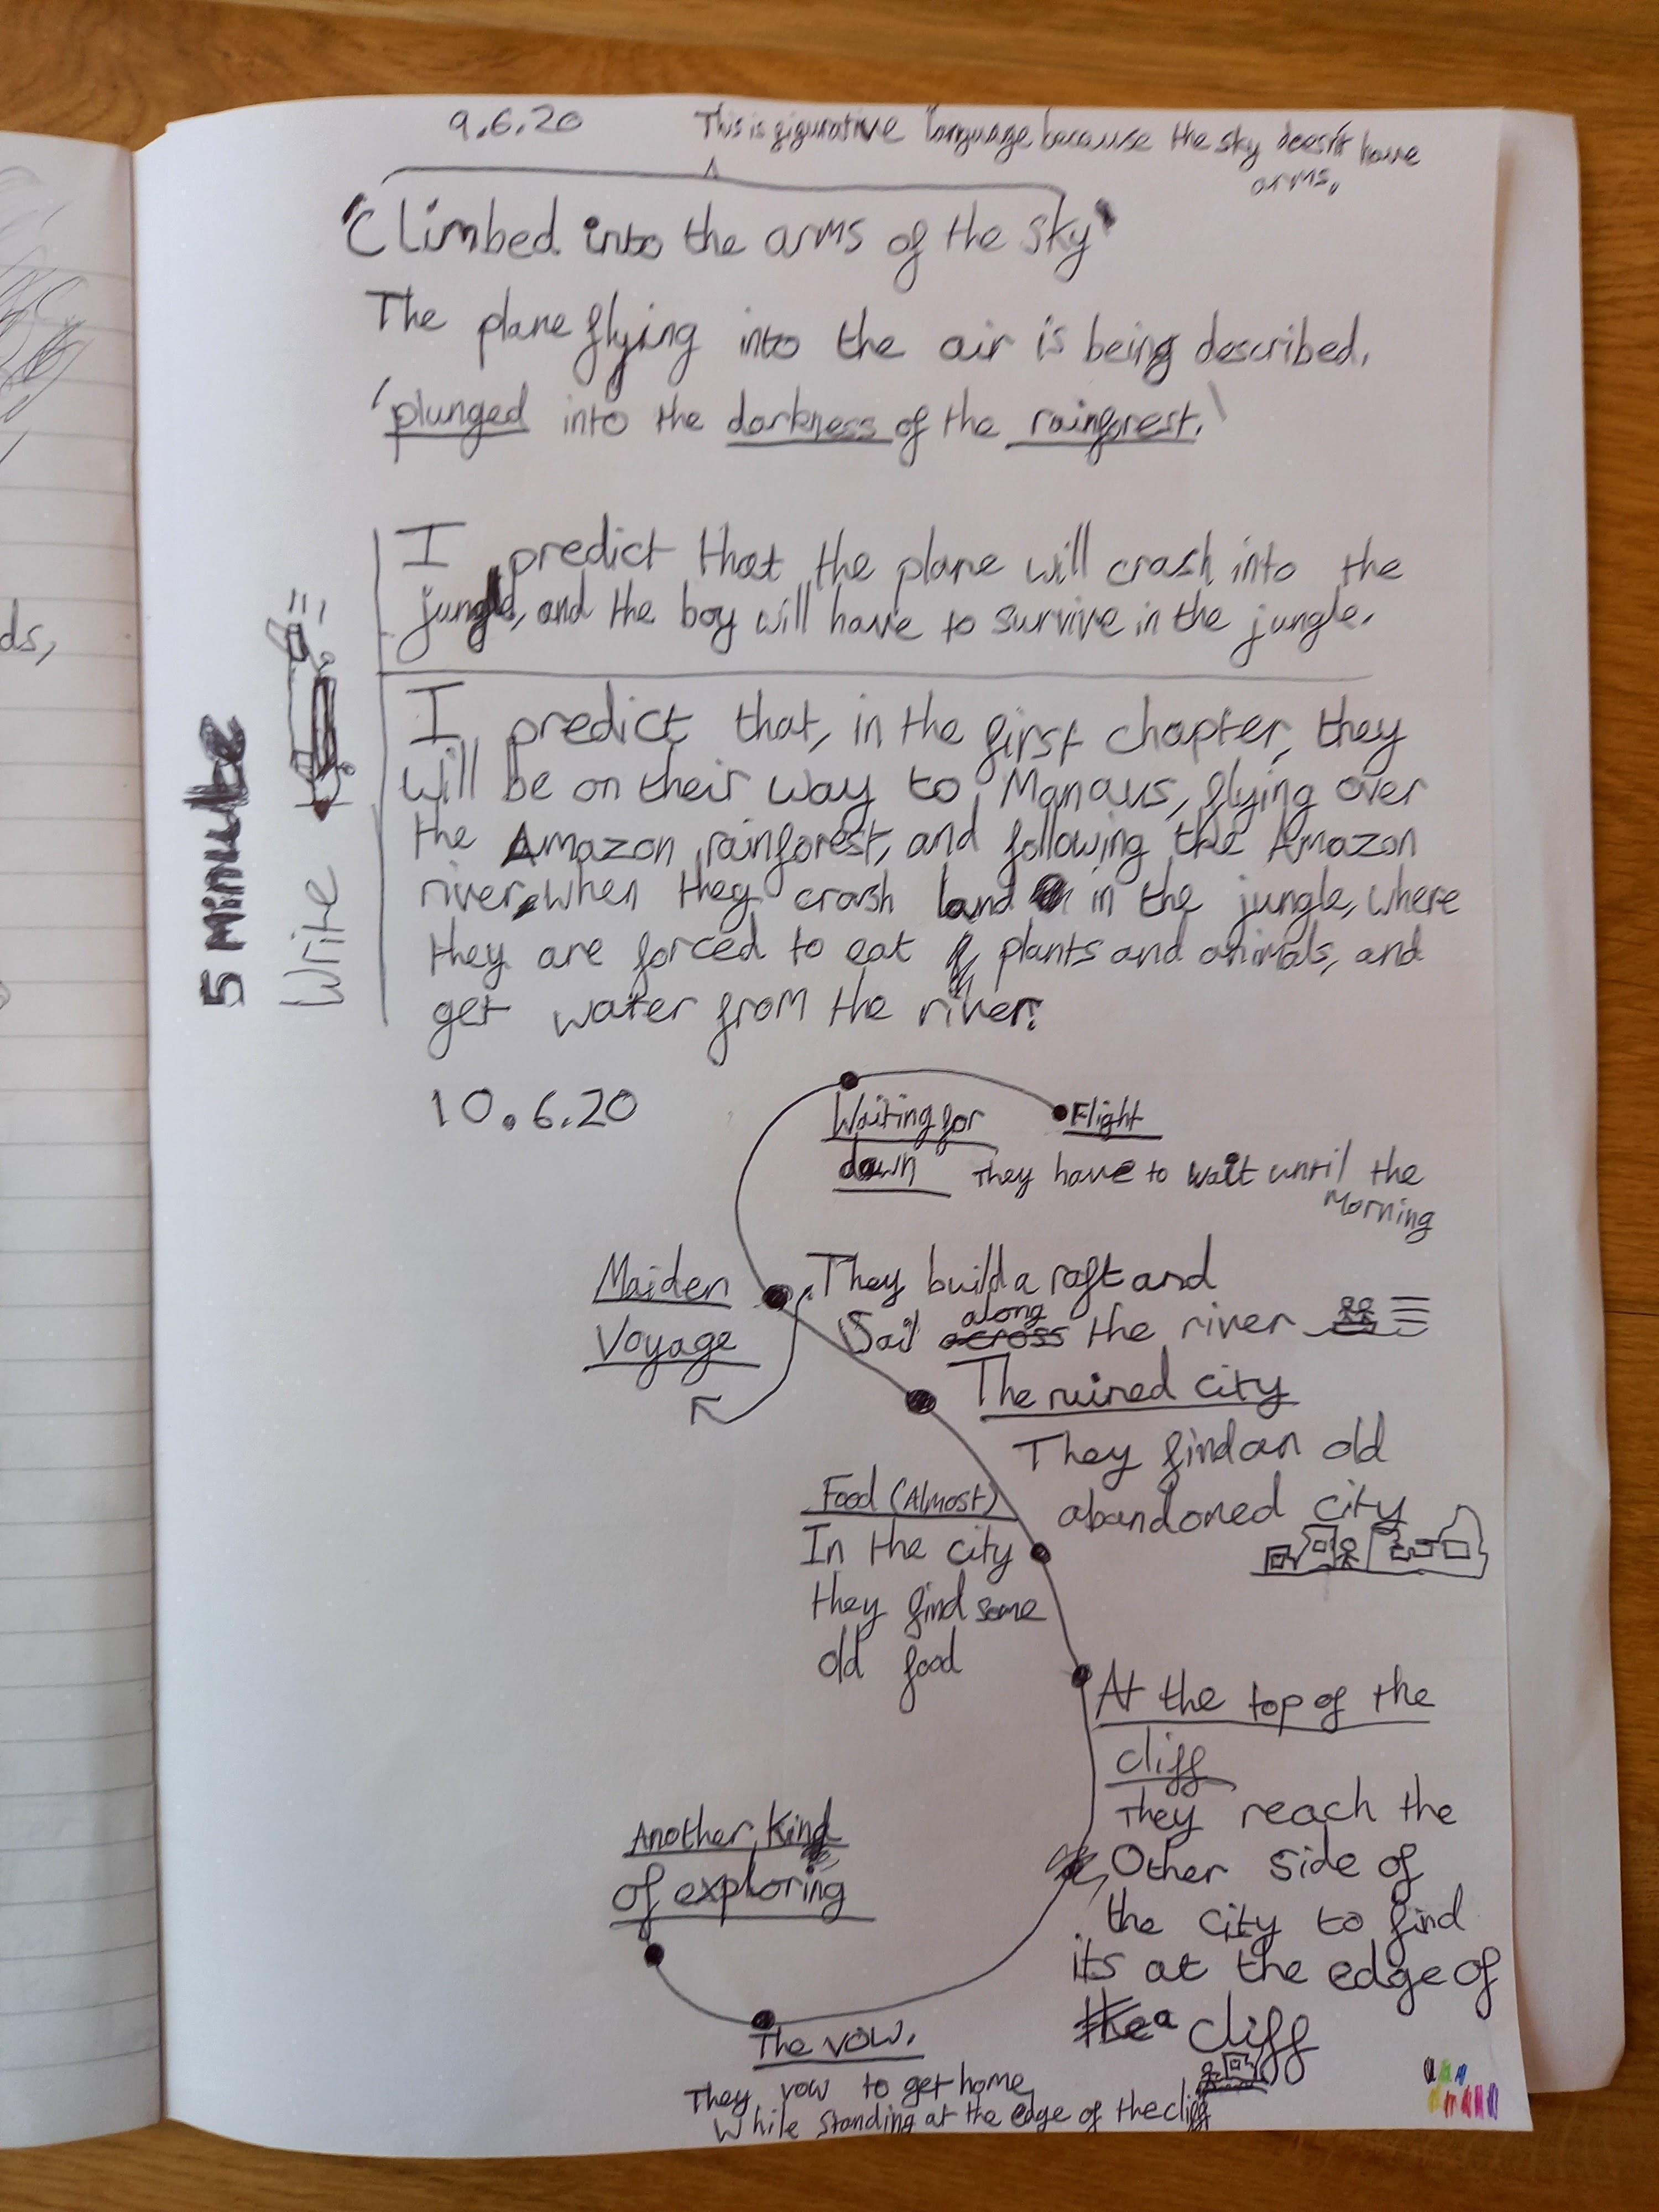 ds,
9.6.20
This is figurative language because the sky doesn't have
arms.
"Climbed into the arms of the sky"
The plane flying into the air is being described.
'plunged into the darkness of the rainforest.'
5 minute
Write
I predict that the plane will crash into the
jungle, and the boy will have to survive in the jungle.
I predict that, in the first chapter, they
will be on their way to Manaus, flying over
the Amazon rainforest, and following the Amazon
river, when they crash land in the jungle, where
they are forced to eat plants and animals, and
get water from the river.
10.6.20
Flight
Waiting for
dawn
They have to wait until the
morning
Maiden
Voyage
They build a raft and
Sail across along the river
The ruined city
They find an old
abandoned city
Food (Almost)
In the city
they find some
old food
At the top of the
cliff
They reach the
Other side of
the city to find
its at the edge of
the a cliff
The vow.
They vow to get home
While standing at the edge of the cliff
Another Kind
of exploring